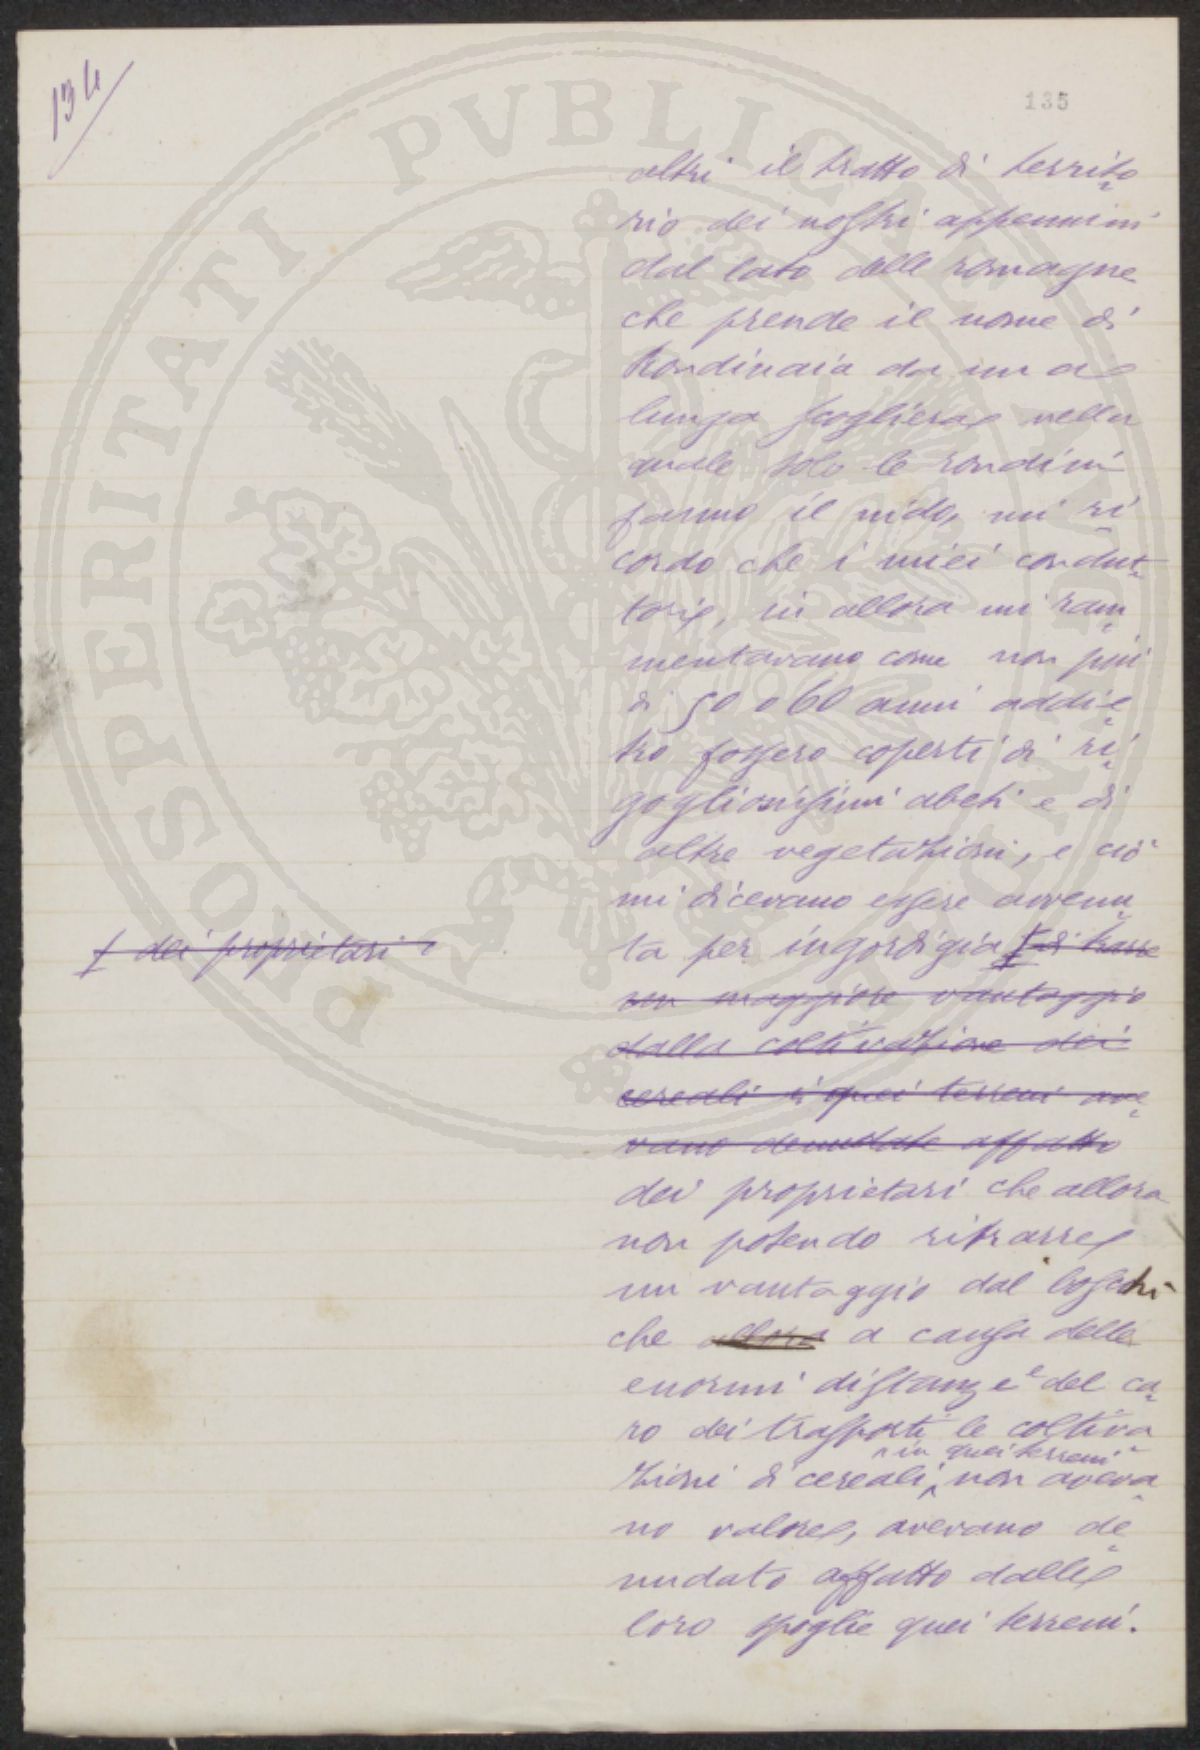 134
135
altri il tratto di territo
rio dei nostri appennini
dal lato delle romagne
che prende il nome di
Rondinaia da una
lunga scogliera nella
quale solo le rondini
fanno il nido, mi ri
cordo che i miei condut
tori, in allora mi ram
mentavano come non più
di 50 o 60 anni addie
tro fossero coperti di ri
gogliosissimi abeti e di
altre vegetazioni, e ciò
mi dicevano essere avvenu
ta per ingordigia di trarre
dei proprietari
un maggiore vantaggio
dalla coltivazione dei
cereali i quei terreni ave
vano denudate affatto
dei proprietari che allora
non potendo ritrarre
un vantaggio dal boschi
che allora a causa delle
enormi distanze e del ca
ro dei trasporti le coltiva
in quei terreni
zioni di cereali, non aveva
no valore, avevano de
nudato affatto dalle
loro spoglie quei terreni.
PROSPERITATI PVBLICAE